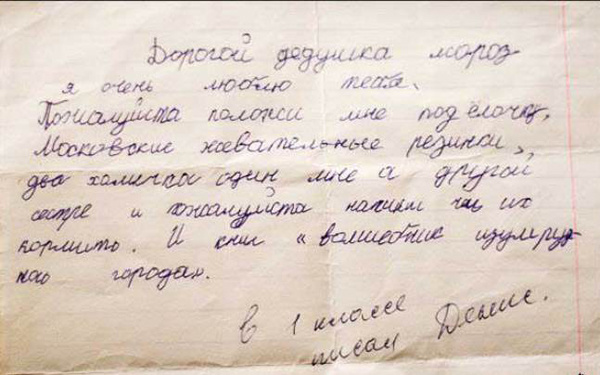 Дорогой дедушка мороз
я очень люблю тебя.
Пожалуйста положи мне под ёлочку,
Московские жевательные резинки,
два хомичка один мне а другой
сестре и пожалуйста напиши чем их
кормить. И книг "волшебник изумруд
ного города".
в 1 классе
писал Денис.